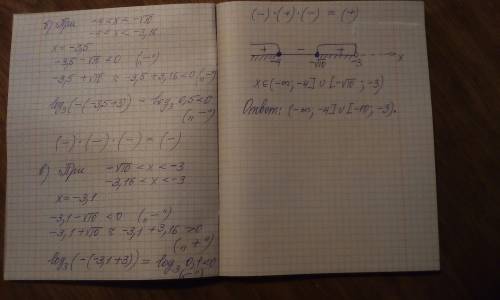 б) При -4 < x < -√10
-4 < x < -3,16
x = -3,5
-3,5 - √10 < 0 („-")
-3,5 + √10 ≈ -3,5 + 3,16 < 0 („-")
log₃(-(-3,5+3)) = log₃ 0,5 < 0
(„-")
(-)·(-)·(-) = (-)
в) При -√10 < x < -3
-3,16 < x < -3
x = -3,1
-3,1 - √10 < 0 („-")
-3,1 + √10 ≈ -3,1 + 3,16 > 0
(„+")
log₃(-(-3,1+3)) = log₃ 0,1 < 0
(„-")
(-)·(+)·(-) = (+)
+ - +
-4 -√10 -3 x
x ∈ (-∞; -4] ∪ [-√10; -3)
Ответ: (-∞; -4] ∪ [-√10; -3).